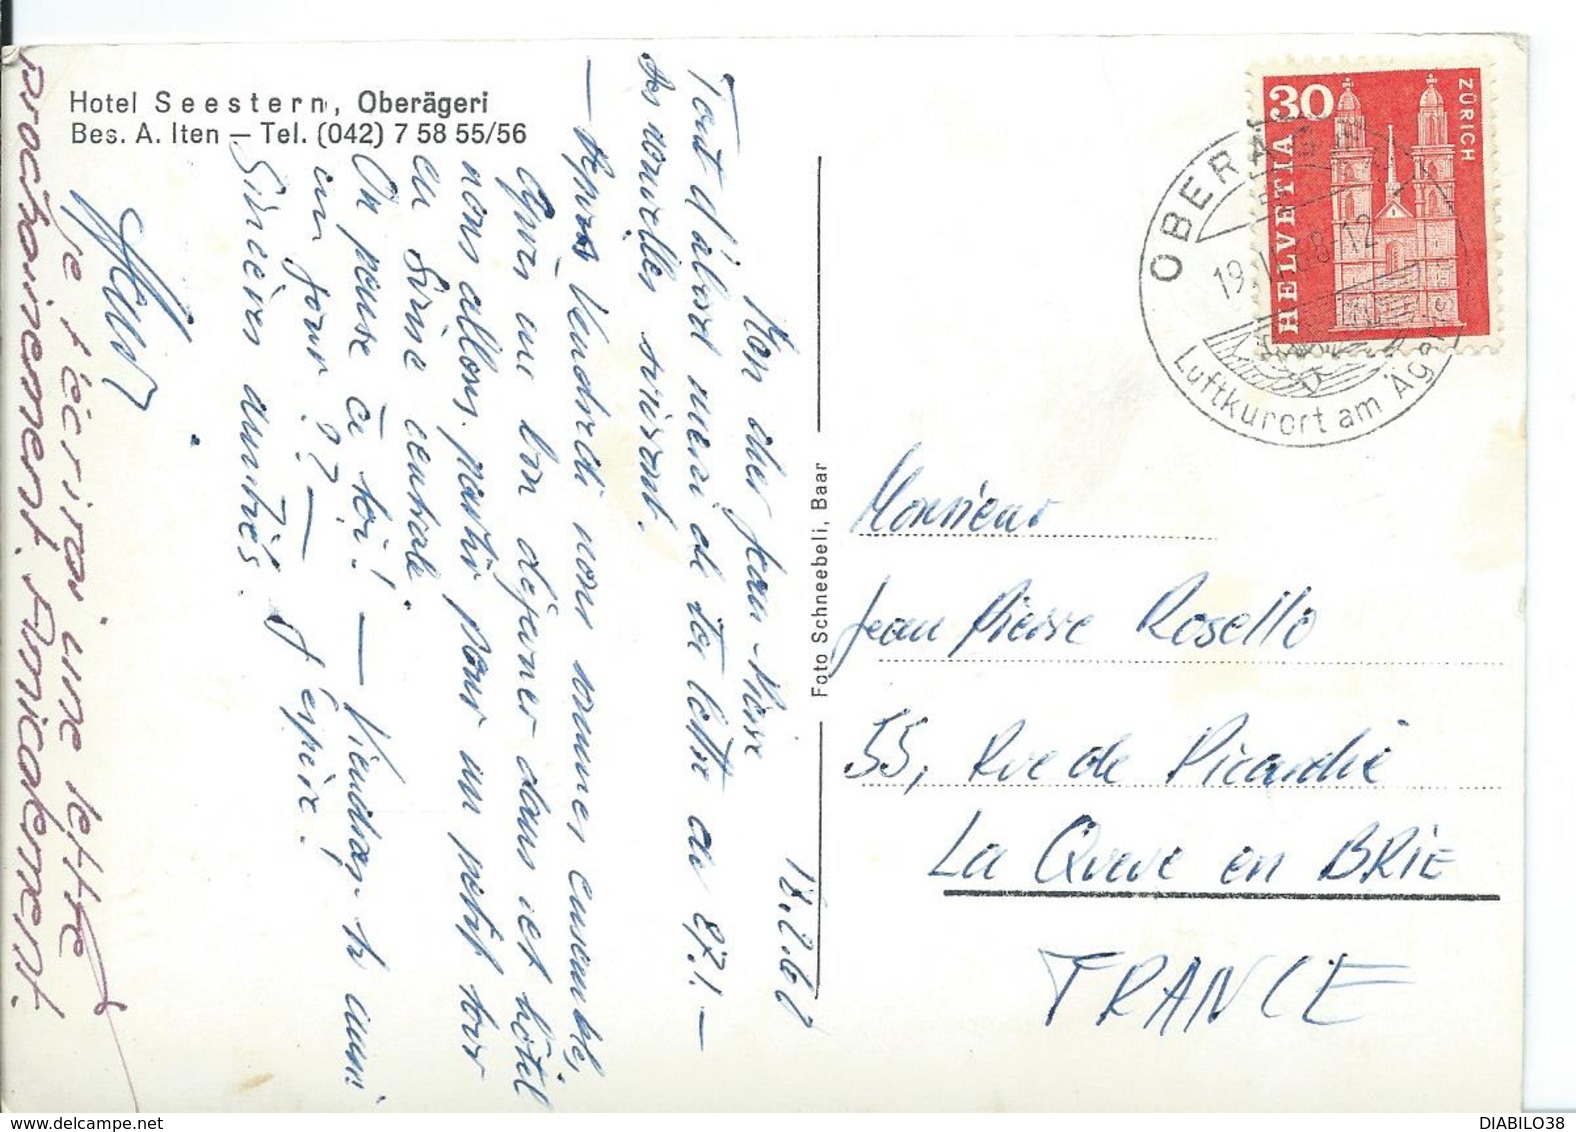 Hotel Seestern, Oberägeri
Bes. A. Iten — Tel. (042) 7 58 55/56
Mon cher Jean-Pierre
Tout d'abord merci de ta lettre du 27.1 —
des nouvelles suivront.
— Vendredi nous sommes ensemble,
Après un bon déjeuner dans cet hôtel
nous allons partir pour un petit tour
en Suisse centrale.
On pense à toi! — Viendras-tu aussi
un jour?? — J'espère!
Sincères amitiés
Je t'écrirai une lettre
prochainement. Amicalement.
Foto Schneebeli, Baar
30
HELVETIA
ZÜRICH
OBER
19. 8-12
Luftkurort am Äger
Monsieur
Jean Pierre Rosello
55, Rue de Picardie
La Queue en BRIE
FRANCE
DIABILO38